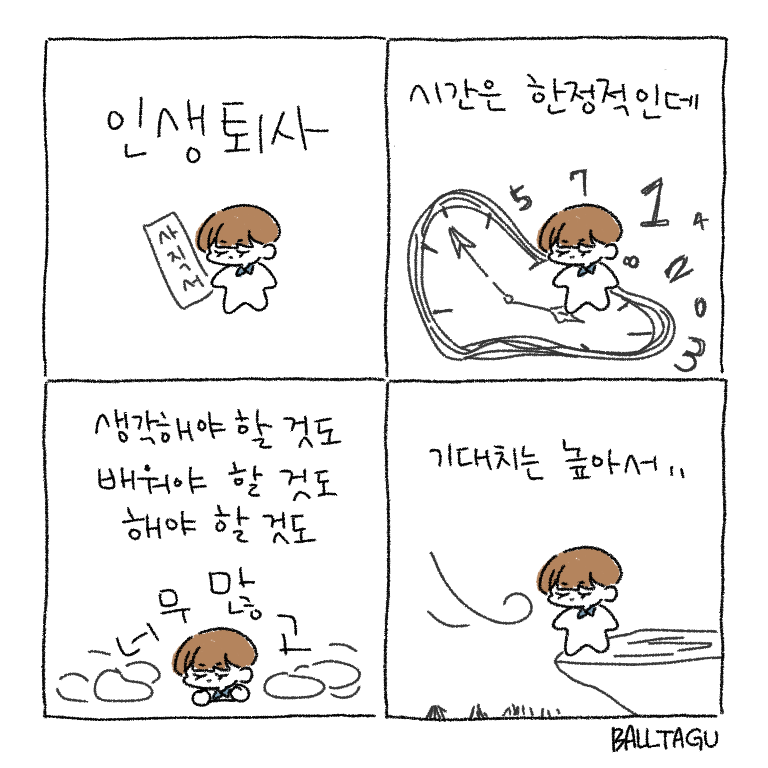 인생퇴사
사직서
시간은 한정적인데
5 7 1 4
8 2 0 3
생각해야 할 것도
배워야 할 것도
해야 할 것도
너무 많고
기대치는 높아서..
BALLTAGU